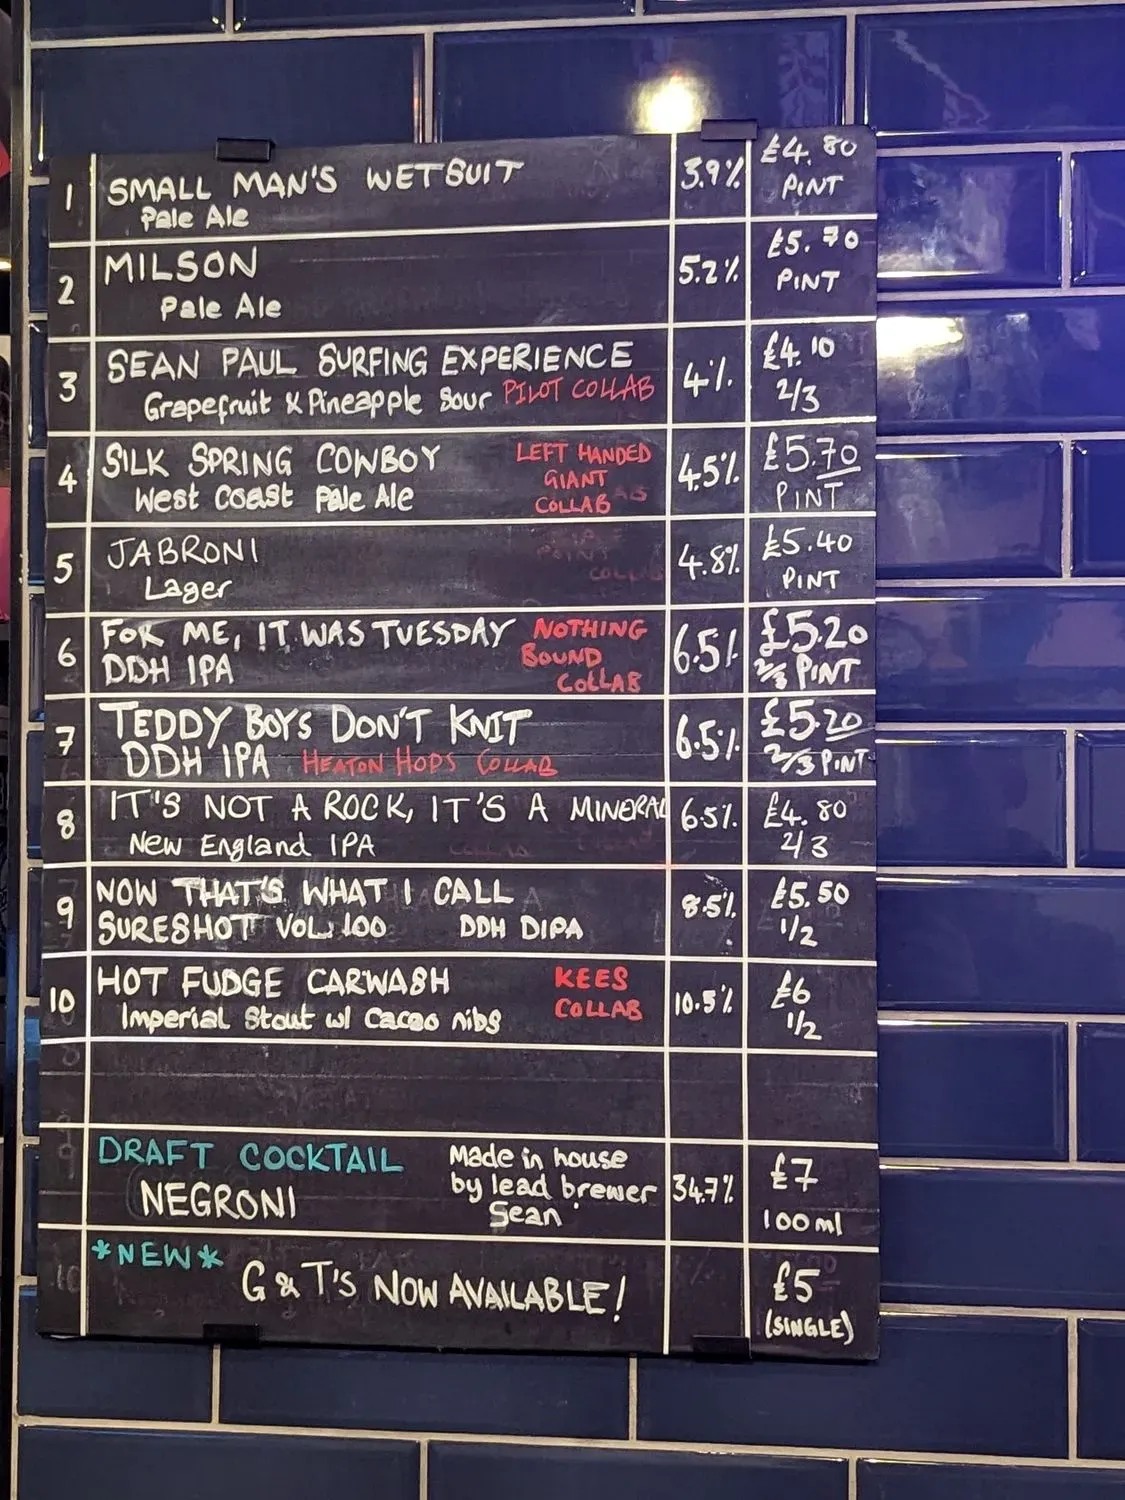 1 SMALL MAN'S WETSUIT 3.9% £4.80
Pale Ale PINT
2 MILSON 5.2% £5.70
Pale Ale PINT
3 SEAN PAUL SURFING EXPERIENCE 4% £4.10
Grapefruit x Pineapple Sour PILOT COLLAB 2/3
4 SILK SPRING COWBOY LEFT HANDED 4.5% £5.70
West Coast Pale Ale GIANT PINT
COLLAB
5 JABRONI 4.8% £5.40
Lager PINT
6 FOR ME, IT WAS TUESDAY NOTHING 6.5% £5.20
DDH IPA BOUND 2/3 PINT
COLLAB
7 TEDDY BOYS DON'T KNIT 6.5% £5.20
DDH IPA HEATON HOPS COLLAB 2/3 PINT
8 IT'S NOT A ROCK, IT'S A MINERAL 6.5% £4.80
New England IPA 2/3
9 NOW THAT'S WHAT I CALL 8.5% £5.50
SURESHOT VOL. 100 DDH DIPA 1/2
10 HOT FUDGE CARWASH KEES 10.5% £6
Imperial Stout w/ Cacao nibs COLLAB 1/2
DRAFT COCKTAIL Made in house £7
NEGRONI by lead brewer 34.7%
Sean 100ml
*NEW*
G & T'S NOW AVAILABLE! £5
(SINGLE)